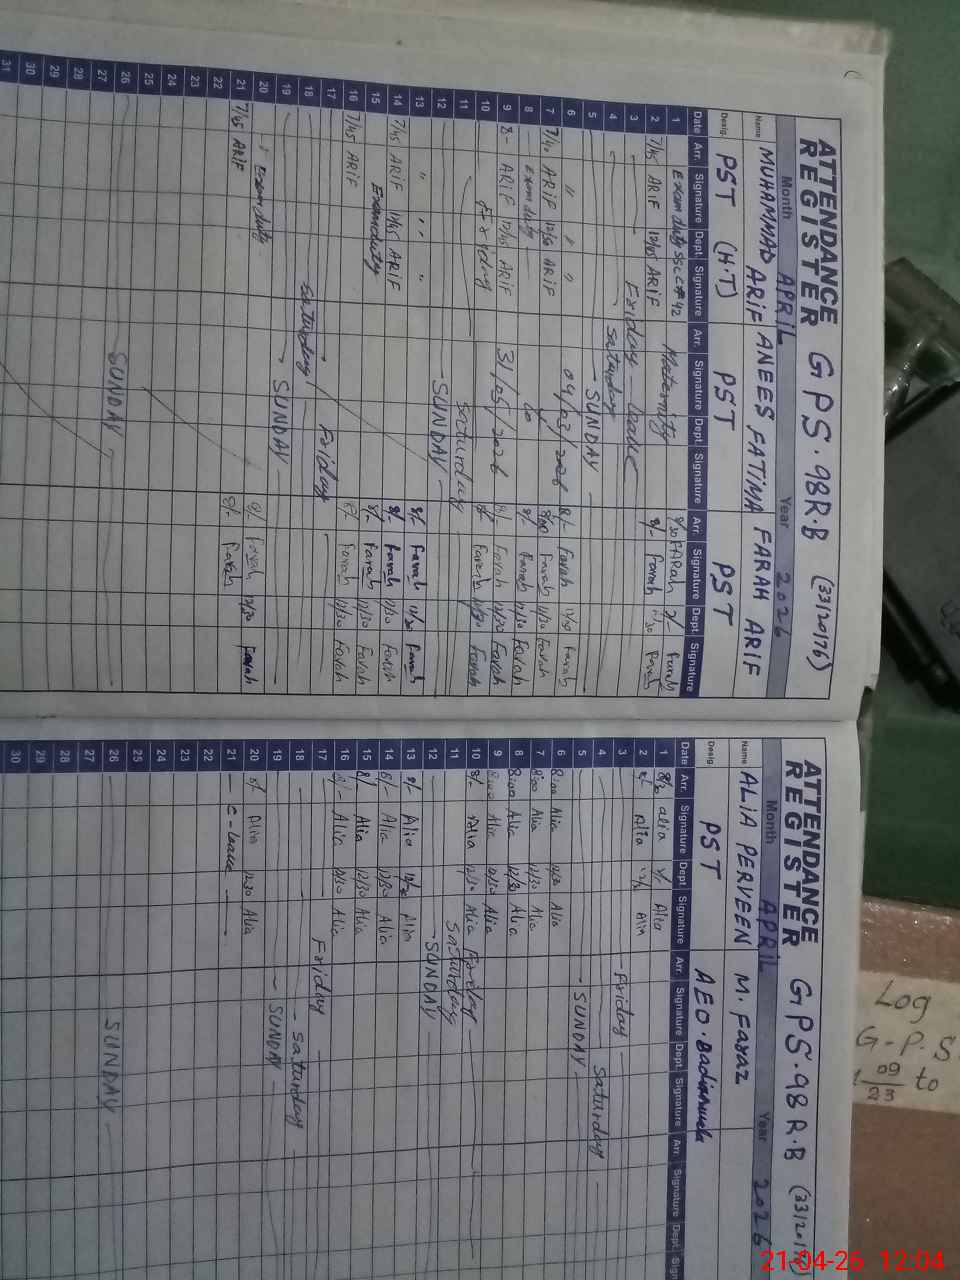 ATTENDANCE REGISTER GPS.98R.B (33120176)
Month APRIL Year 2026
Name MUHAMMAD ARIF ANEES FATIMA FARAH ARIF
Desig. PST (H.T) PST PST
Date Arr. Signature Dept. Signature Arr. Signature Dept. Signature Arr. Signature Dept. Signature
1 Exam duty SSC C#42 Maternity 8/30 FARah Farah
2 7/45 ARIF 12/45 ARIF 8/- Farah Farah
3 Friday leave
4 Saturday
5 SUNDAY
6 " " " 04/03/2026 8/- Farah Farah
7 ARIF 12/50 ARIF to Farah 12/30 Farah
8 Exam duty 8/- Farah 12/30 Farah
9 8- ARIF 12/45 ARIF 31/05/2026 8/- Farah 12/30 Farah
10 Friday Farah 12/30 Farah
11 Saturday
12 SUNDAY
13 " " " 8/- Farah 12/30 Farah
14 7/45 ARIF 1/45 ARIF 8/- Farah 12/30 Farah
15 Exam duty 8/- Farah 12/30 Farah
16 7/45 ARIF 8/- Farah 12/30 Farah
17 Friday
18 Saturday
19 SUNDAY
20 Exam duty 8/- Farah 12/30 Farah
21 7/45 ARIF 8/- Farah
22
23
24
25
26 SUNDAY
27
28
29
30
31
ATTENDANCE REGISTER GPS.98R.B
Month APRIL Year 2026
Name ALIA PERVEEN M. Faraz
Desig PST AEO.
Date Arr. Signature Dept. Signature Arr. Signature Dept. Signature Arr. Signature Dept.
1 alia Alia
2 8/- Alia Alia
3 Friday
4 Saturday
5 SUNDAY
6 8:00 Alia 12/30 Alia
7 8:00 Alia 12/30 Alia
8 8:00 Alia 12/30 Alia
9 8:00 Alia 12/30 Alia
10 8/- Alia 12/30 Alia Friday
11 Saturday
12 SUNDAY
13 8/- Alia 12/30 Alia
14 8/- Alia 12/30 Alia
15 8/- Alia 12/30 Alia
16 8/- Alia 12/30 Alia
17 Friday
18 Saturday
19 SUNDAY
20 8/- Alia 12.30 Alia
21 C-leave
22
23
24
25
26 SUNDAY
27
28
29
30
Log
G-P.S
09
23 to
21-04-26 12:04